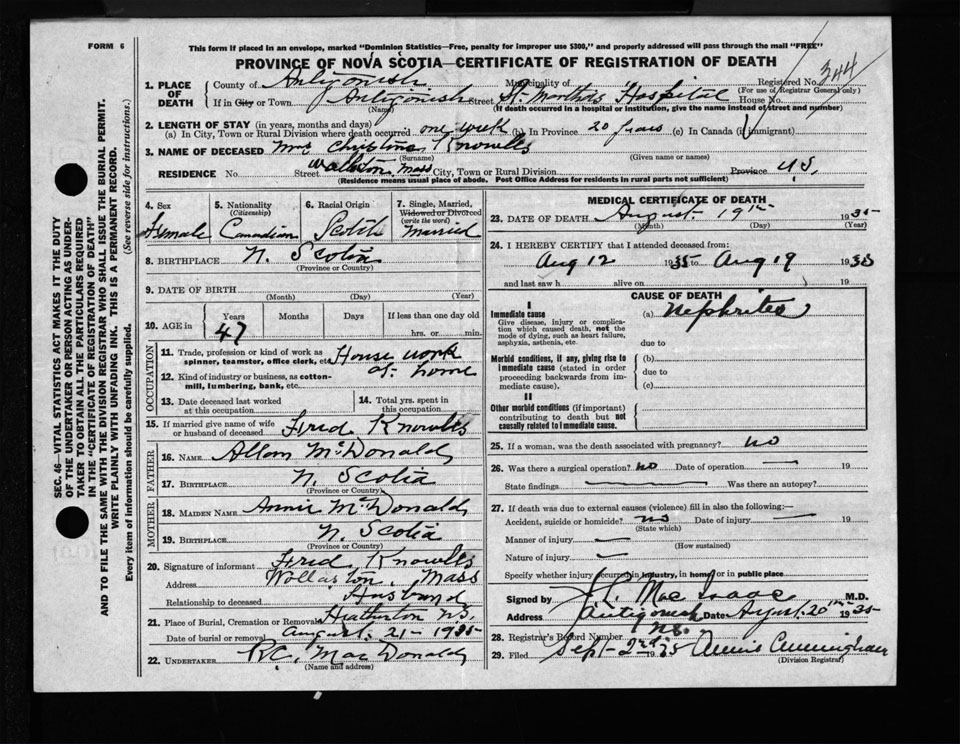 FORM 6
This form if placed in an envelope, marked "Dominion Statistics—Free, penalty for improper use $300," and properly addressed will pass through the mail "FREE"
PROVINCE OF NOVA SCOTIA—CERTIFICATE OF REGISTRATION OF DEATH
Registered No. 344
(For use of Registrar General only)
1. PLACE OF DEATH
County of Antigonish Municipality of
If in City or Town Antigonish Street St. Martha's Hospital House No.
(Name) (If death occurred in a hospital or institution, give the name instead of street and number)
2. LENGTH OF STAY (in years, months and days)
(a) In City, Town or Rural Division where death occurred one week (b) In Province 20 years (c) In Canada (if immigrant)
3. NAME OF DECEASED Mrs Christina Knowlls
(Surname) (Given name or names)
RESIDENCE No. Street Wallston, Mass City, Town or Rural Division Province U.S.
(Residence means usual place of abode. Post Office Address for residents in rural parts not sufficient)
4. Sex Female
5. Nationality (Citizenship) Canadian
6. Racial Origin Scotch
7. Single, Married, Widowed or Divorced (write the word) Married
8. BIRTHPLACE N. Scotia
(Province or Country)
9. DATE OF BIRTH
(Month) (Day) (Year)
10. AGE in Years Months Days If less than one day old
47 hrs. or min.
OCCUPATION
11. Trade, profession or kind of work as spinner, teamster, office clerk, etc. House work
12. Kind of industry or business, as cotton-mill, lumbering, bank, etc. at home
13. Date deceased last worked at this occupation
14. Total yrs. spent in this occupation
15. If married give name of wife or husband of deceased Fred Knowlls
FATHER
16. NAME Allan McDonald
17. BIRTHPLACE N. Scotia
(Province or Country)
MOTHER
18. MAIDEN NAME Annie McDonald
19. BIRTHPLACE N. Scotia
(Province or Country)
20. Signature of informant Fred Knowlls
Address Wollaston, Mass
Relationship to deceased Husband
21. Place of Burial, Cremation or Removal Heatherton N.S.
Date of burial or removal August 21 - 1935
22. UNDERTAKER R.C. MacDonald
(Name and address)
MEDICAL CERTIFICATE OF DEATH
23. DATE OF DEATH August 19th 1935
(Month) (Day) (Year)
24. I HEREBY CERTIFY that I attended deceased from:
Aug 12 1935 to Aug 19 1935
and last saw h alive on 19
CAUSE OF DEATH
I
Immediate cause (a) Nephrites
Give disease, injury or complication which caused death, not the mode of dying, such as heart failure, asphyxia, asthenia, etc. due to
Morbid conditions, if any, giving rise to immediate cause (stated in order proceeding backwards from immediate cause). (b)
due to
(c)
II
Other morbid conditions (if important) contributing to death but not causally related to immediate cause.
25. If a woman, was the death associated with pregnancy? no
26. Was there a surgical operation? no Date of operation 19
State findings Was there an autopsy?
27. If death was due to external causes (violence) fill in also the following:—
Accident, suicide or homicide? no Date of injury 19
(State which)
Manner of injury
(How sustained)
Nature of injury
Specify whether injury occurred in industry, in home or in public place
Signed by MacIsaac M.D.
Address Antigonish N.S. Date August 20th 1935
28. Registrar's Record Number
29. Filed Sept 2nd 1935 Annie Cunningham
(Division Registrar)
SEC. 46—VITAL STATISTICS ACT MAKES IT THE DUTY
OF THE UNDERTAKER OR PERSON ACTING AS UNDER-
TAKER TO OBTAIN ALL THE PARTICULARS REQUIRED
IN THE "CERTIFICATE OF REGISTRATION OF DEATH"
AND TO FILE THE SAME WITH THE DIVISION REGISTRAR WHO SHALL ISSUE THE BURIAL PERMIT.
WRITE PLAINLY WITH UNFADING INK. THIS IS A PERMANENT RECORD.
Every item of information should be carefully supplied. (See reverse side for instructions.)